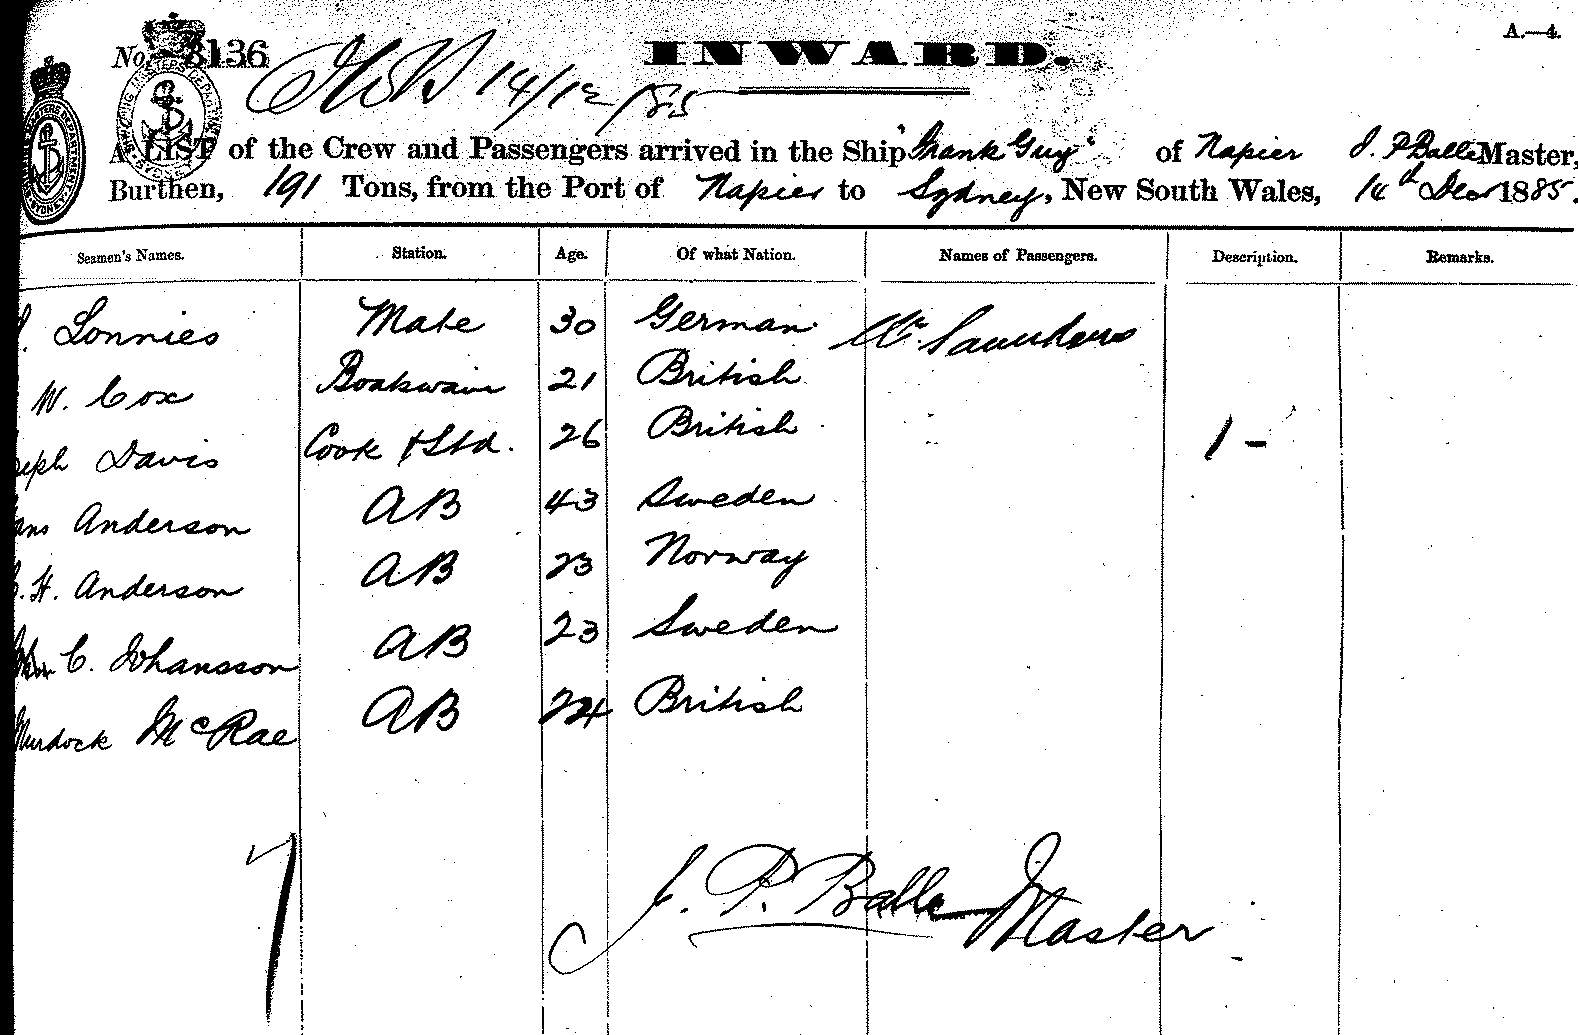 No. 3136
14/12/85
INWARD.
A.—4.
A LIST of the Crew and Passengers arrived in the Ship "Frank Guy" of Napier J. P. Balle Master,
Burthen, 191 Tons, from the Port of Napier to Sydney, New South Wales, 14th Decr 1885.
Seamen's Names. Station. Age. Of what Nation. Names of Passengers. Description. Remarks.
Lonnies Mate 30 German Saunders
W. Cox Boatswain 21 British
Davis Cook & Std. 26 British 1 -
Anderson AB 43 Sweden
H. Anderson AB 23 Norway
C. Johansson AB 23 Sweden
Murdock McRae AB 24 British
7
J. P. Balle Master